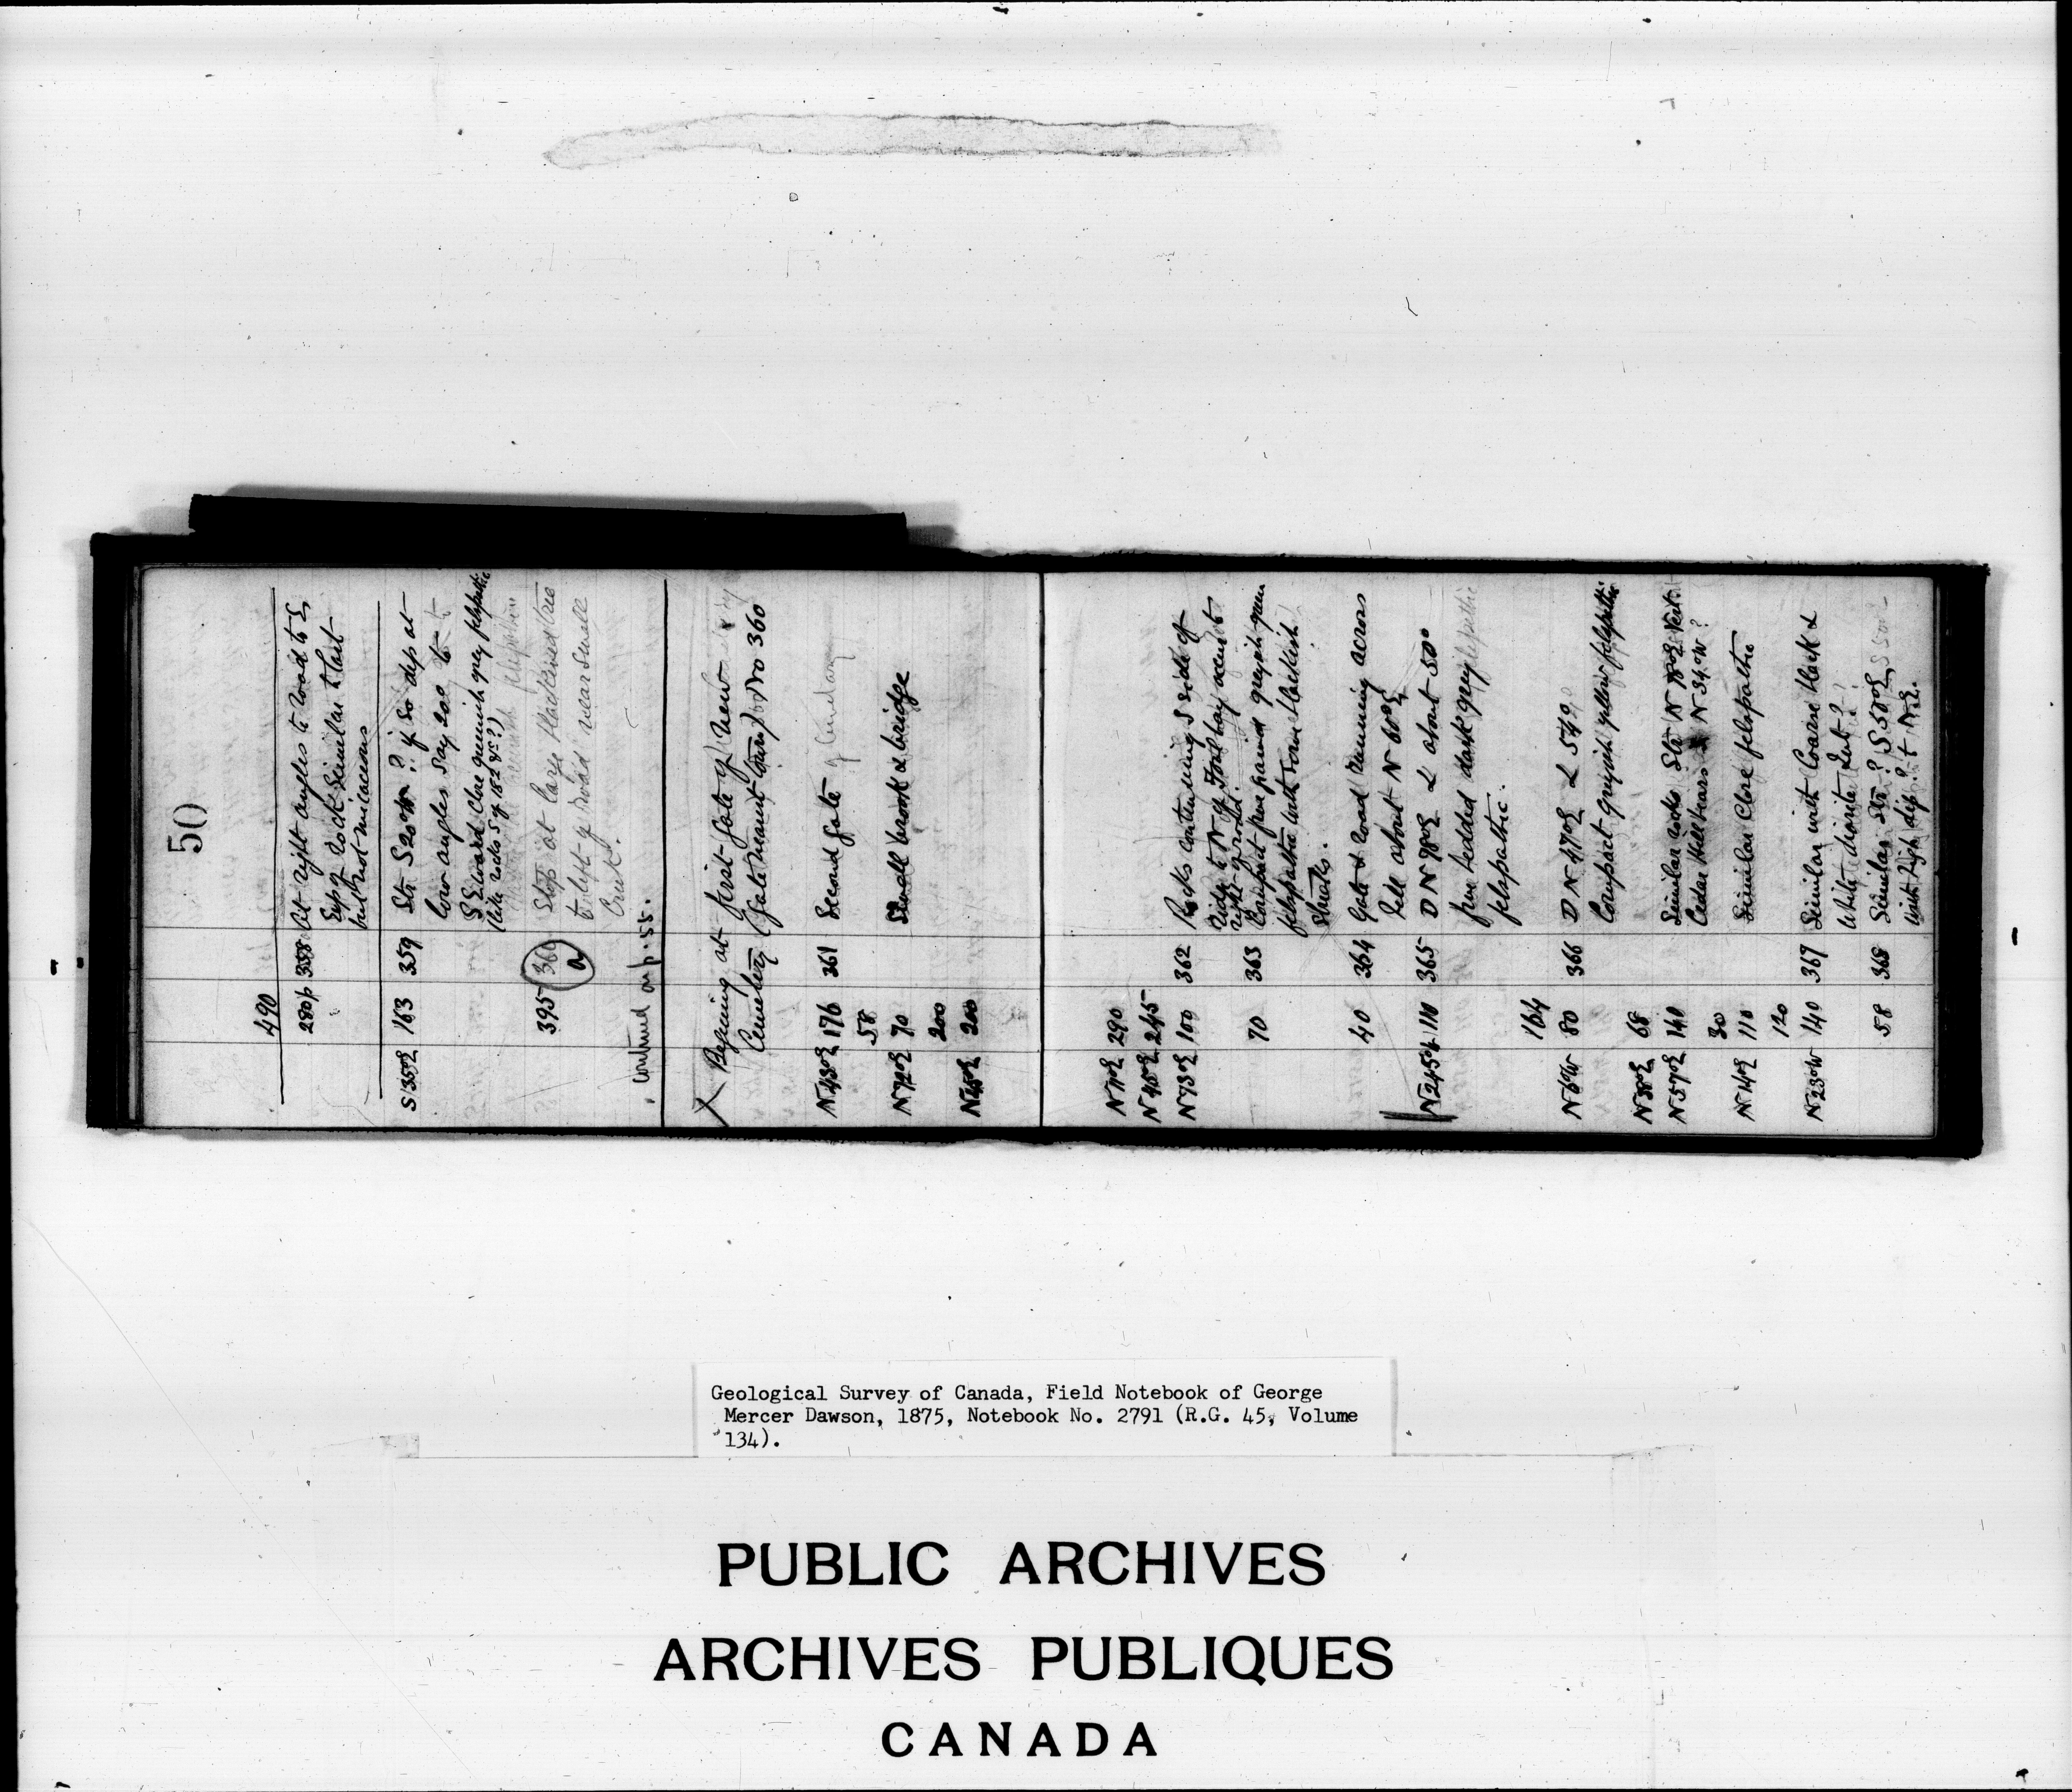 50
490
280p 358 At right angles to road to E
Exp of rock Similar to last
but not micaceous
S 35° E 163 359 Str S 20° W ?? if so dip at
low angles say 20° to
S Eward Close greenish grey felspathic
(like rocks 5 of 15
395 360 a Stop at large blackened tree
to left of road near small
Creek.
continued on p. 55.
X Begining at first Gate of New
Cemetery (Gate nearest town) or No 360
N 43° E 176 361 Second Gate of Cemetary
58
N 72° E 70 Small brook & bridge
200
N 45° E 200
N 71° E 290
N 40° E 245
N 73° E 100 362 Rocks containing S side of
ridge to N of Foul bay occur to
right of road.
70 363 Compact fine grained greyish green
felspathic with some blackish
streaks.
40 364 Gate & road running across
hill about N 60° E
N 245 110 365 D N 98° E L about 50°
fine bedded dark grey
felspathic.
164
N 6° W 80 366 D N 47° E L 54°
Compact greyish yellow felspathic
N 38° E 68
N 57° E 140 Similar rocks Str N 18° E Vert
Cedar Hill bears N 34° W ?
30
N 14° E 110 Similar Close felspathic
120
N 23° W 140 367 Similar with Coarse black &
white diorite
58 368 Similar Str ? S 50° E
with high dip ? to N E.
Geological Survey of Canada, Field Notebook of George
Mercer Dawson, 1875, Notebook No. 2791 (R.G. 45, Volume
134).
PUBLIC ARCHIVES
ARCHIVES PUBLIQUES
CANADA